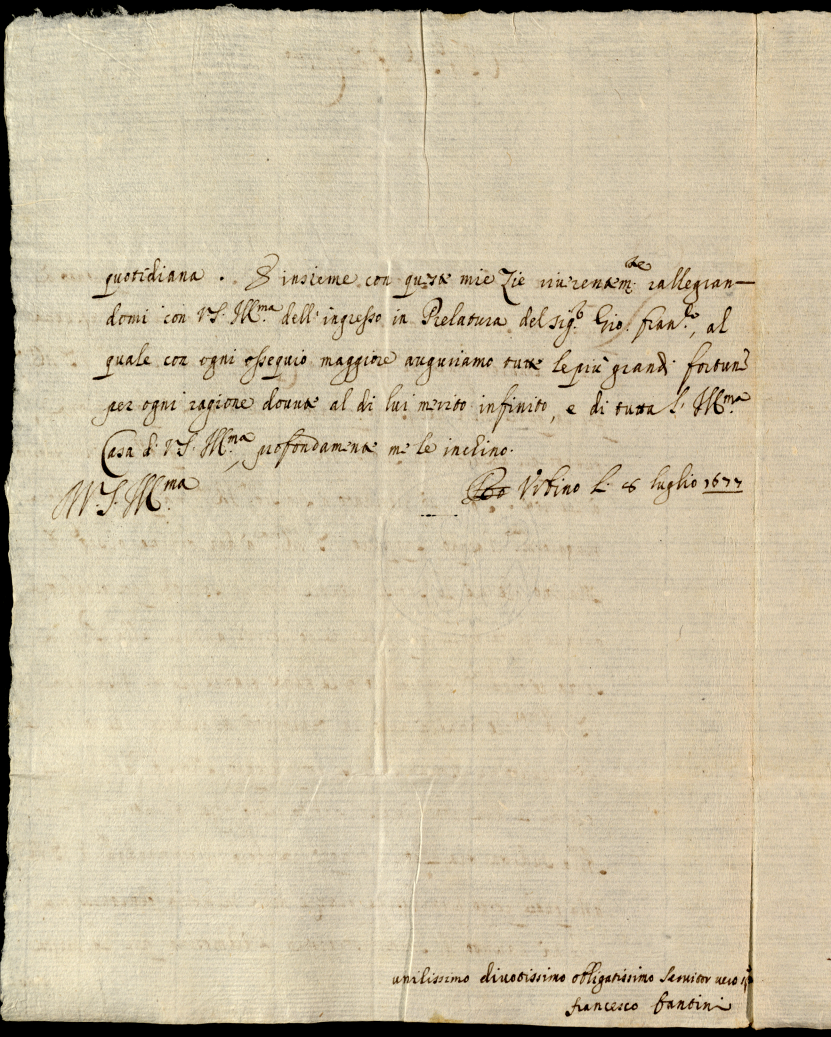 quotidiana. E insieme con queste mie Zie riverentem.te rallegran-
domi con V.S. Ill.ma dell'ingresso in Prelatura del sig.r Gio. Fran.co, al
quale con ogni ossequio maggiore auguriamo tutte le più grandi fortune
per ogni ragione dovute al di lui merito infinito, e di tutta l'Ill.ma
Casa di V.S. Ill.ma, profondamente me le inchino.
V.S. Ill.ma
Urbino li 8 luglio 1677
umilissimo divotissimo obligatissimo servitor vero
francesco fantini